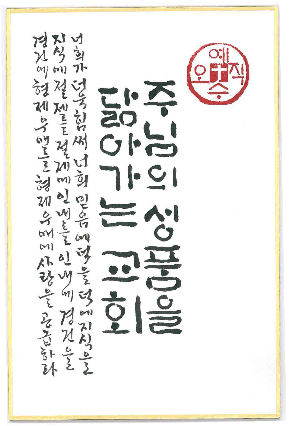 오직예수
주님의 성품을
닮아가는 교회
너희가 더욱 힘써 너희 믿음에 덕을 덕에 지식을
지식에 절제를 절제에 인내를 인내에 경건을
경건에 형제우애를 형제우애에 사랑을 공급하라